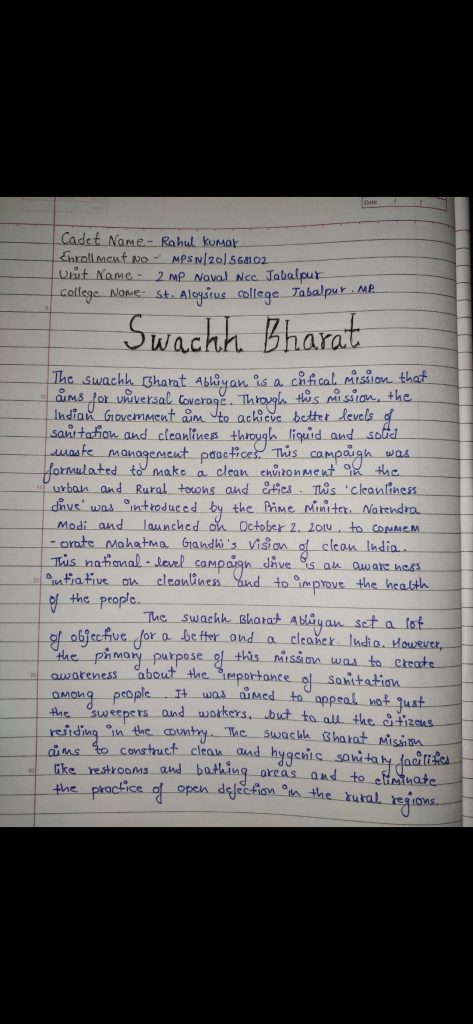 Date / /
Cadet Name- Rahul Kumar
Enrollment No - MPSN/20/568102
Unit Name - 2 MP Naval Ncc Jabalpur
College Name- St. Aloysius College Jabalpur. MP
Swachh Bharat
The swachh Bharat Abhiyan is a critical mission that
aims for universal coverage. Through this mission, the
Indian Government aim to achieve better levels of
sanitation and cleanliness through liquid and solid
waste management practices. This campaign was
formulated to make a clean environment in the
urban and Rural towns and cities. This 'cleanliness
drive' was introduced by the Prime Miniter. Narendra
Modi and launched on October 2, 2014, to commem
-orate Mahatma Gandhi's Vision of clean India.
This national-level campaign drive is an awareness
intiative on cleanliness and to improve the health
of the people.
The swachh Bharat Abhiyan set a lot
of objective for a better and a cleaner India. However,
the primary purpose of this mission was to create
awareness about the importance of sanitation
among people. It was aimed to appeal not just
the sweepers and workers, but to all the citizens
residing in the country. The swachh Bharat Mission
aims to construct clean and hygenic sanitary facilities
like restrooms and bathing areas and to eliminate
the practice of open defection in the rural regions.